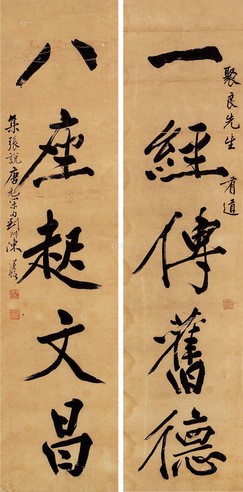 聚良先生 有道
一經傳舊德
八座起文昌
集張說唐元宗句 劉陳